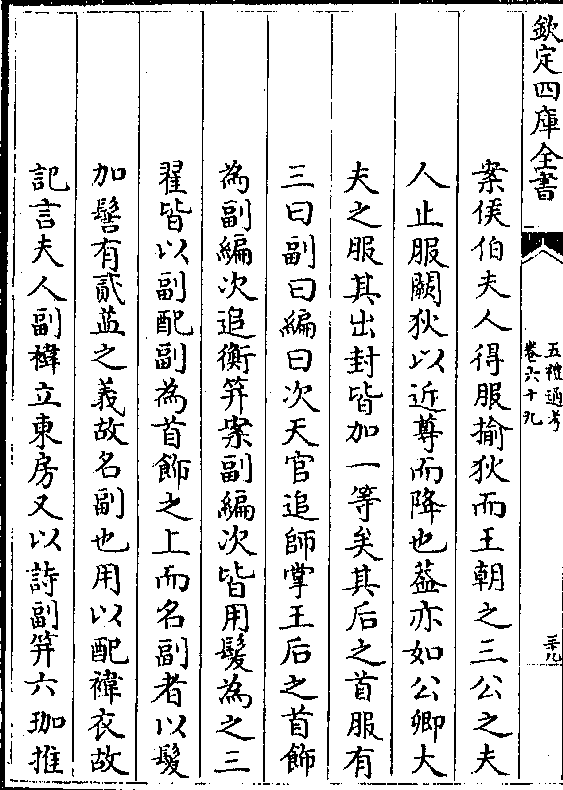 欽定四庫全書
五禮通考
卷六十九
三十九
案侯伯夫人得服揄狄而王朝之三公之夫
人止服闕狄以近尊而降也葢亦如公卿大
夫之服其出封皆加一等矣其后之首服有
三曰副曰編曰次天官追師掌王后之首飾
為副編次追衡笄案副編次皆用髲為之三
翟皆以副配副為首飾之上而名副者以髲
加髻有貳葢之義故名副也用以配褘衣故
記言夫人副褘立東房又以詩副笄六珈推